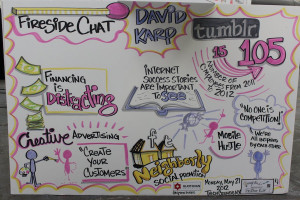 FIRESIDE CHAT
DAVID
KARP
tumblr.
15
105
NUMBER OF
EMPLOYEES FROM 2011
TO 2012
FINANCING
IS
DISTRACTING
INTERNET
SUCCESS STORIES
ARE IMPORTANT
TO SEE
"NO ONE IS
COMPETITION"
"WE'RE
ALL
Creative ADVERTISING
"CREATE
YOUR
CUSTOMERS"
Neighborly
SOCIAL PROMOTION
MOBILE
HUSTLE
MONDAY, MAY 21
2012